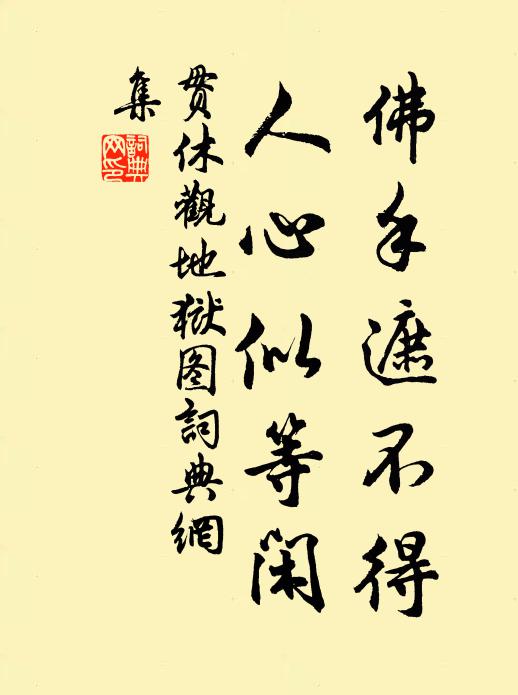 佛手遮不得
人心似等閑
貫休觀地獄图詞典網
集
詞典網印